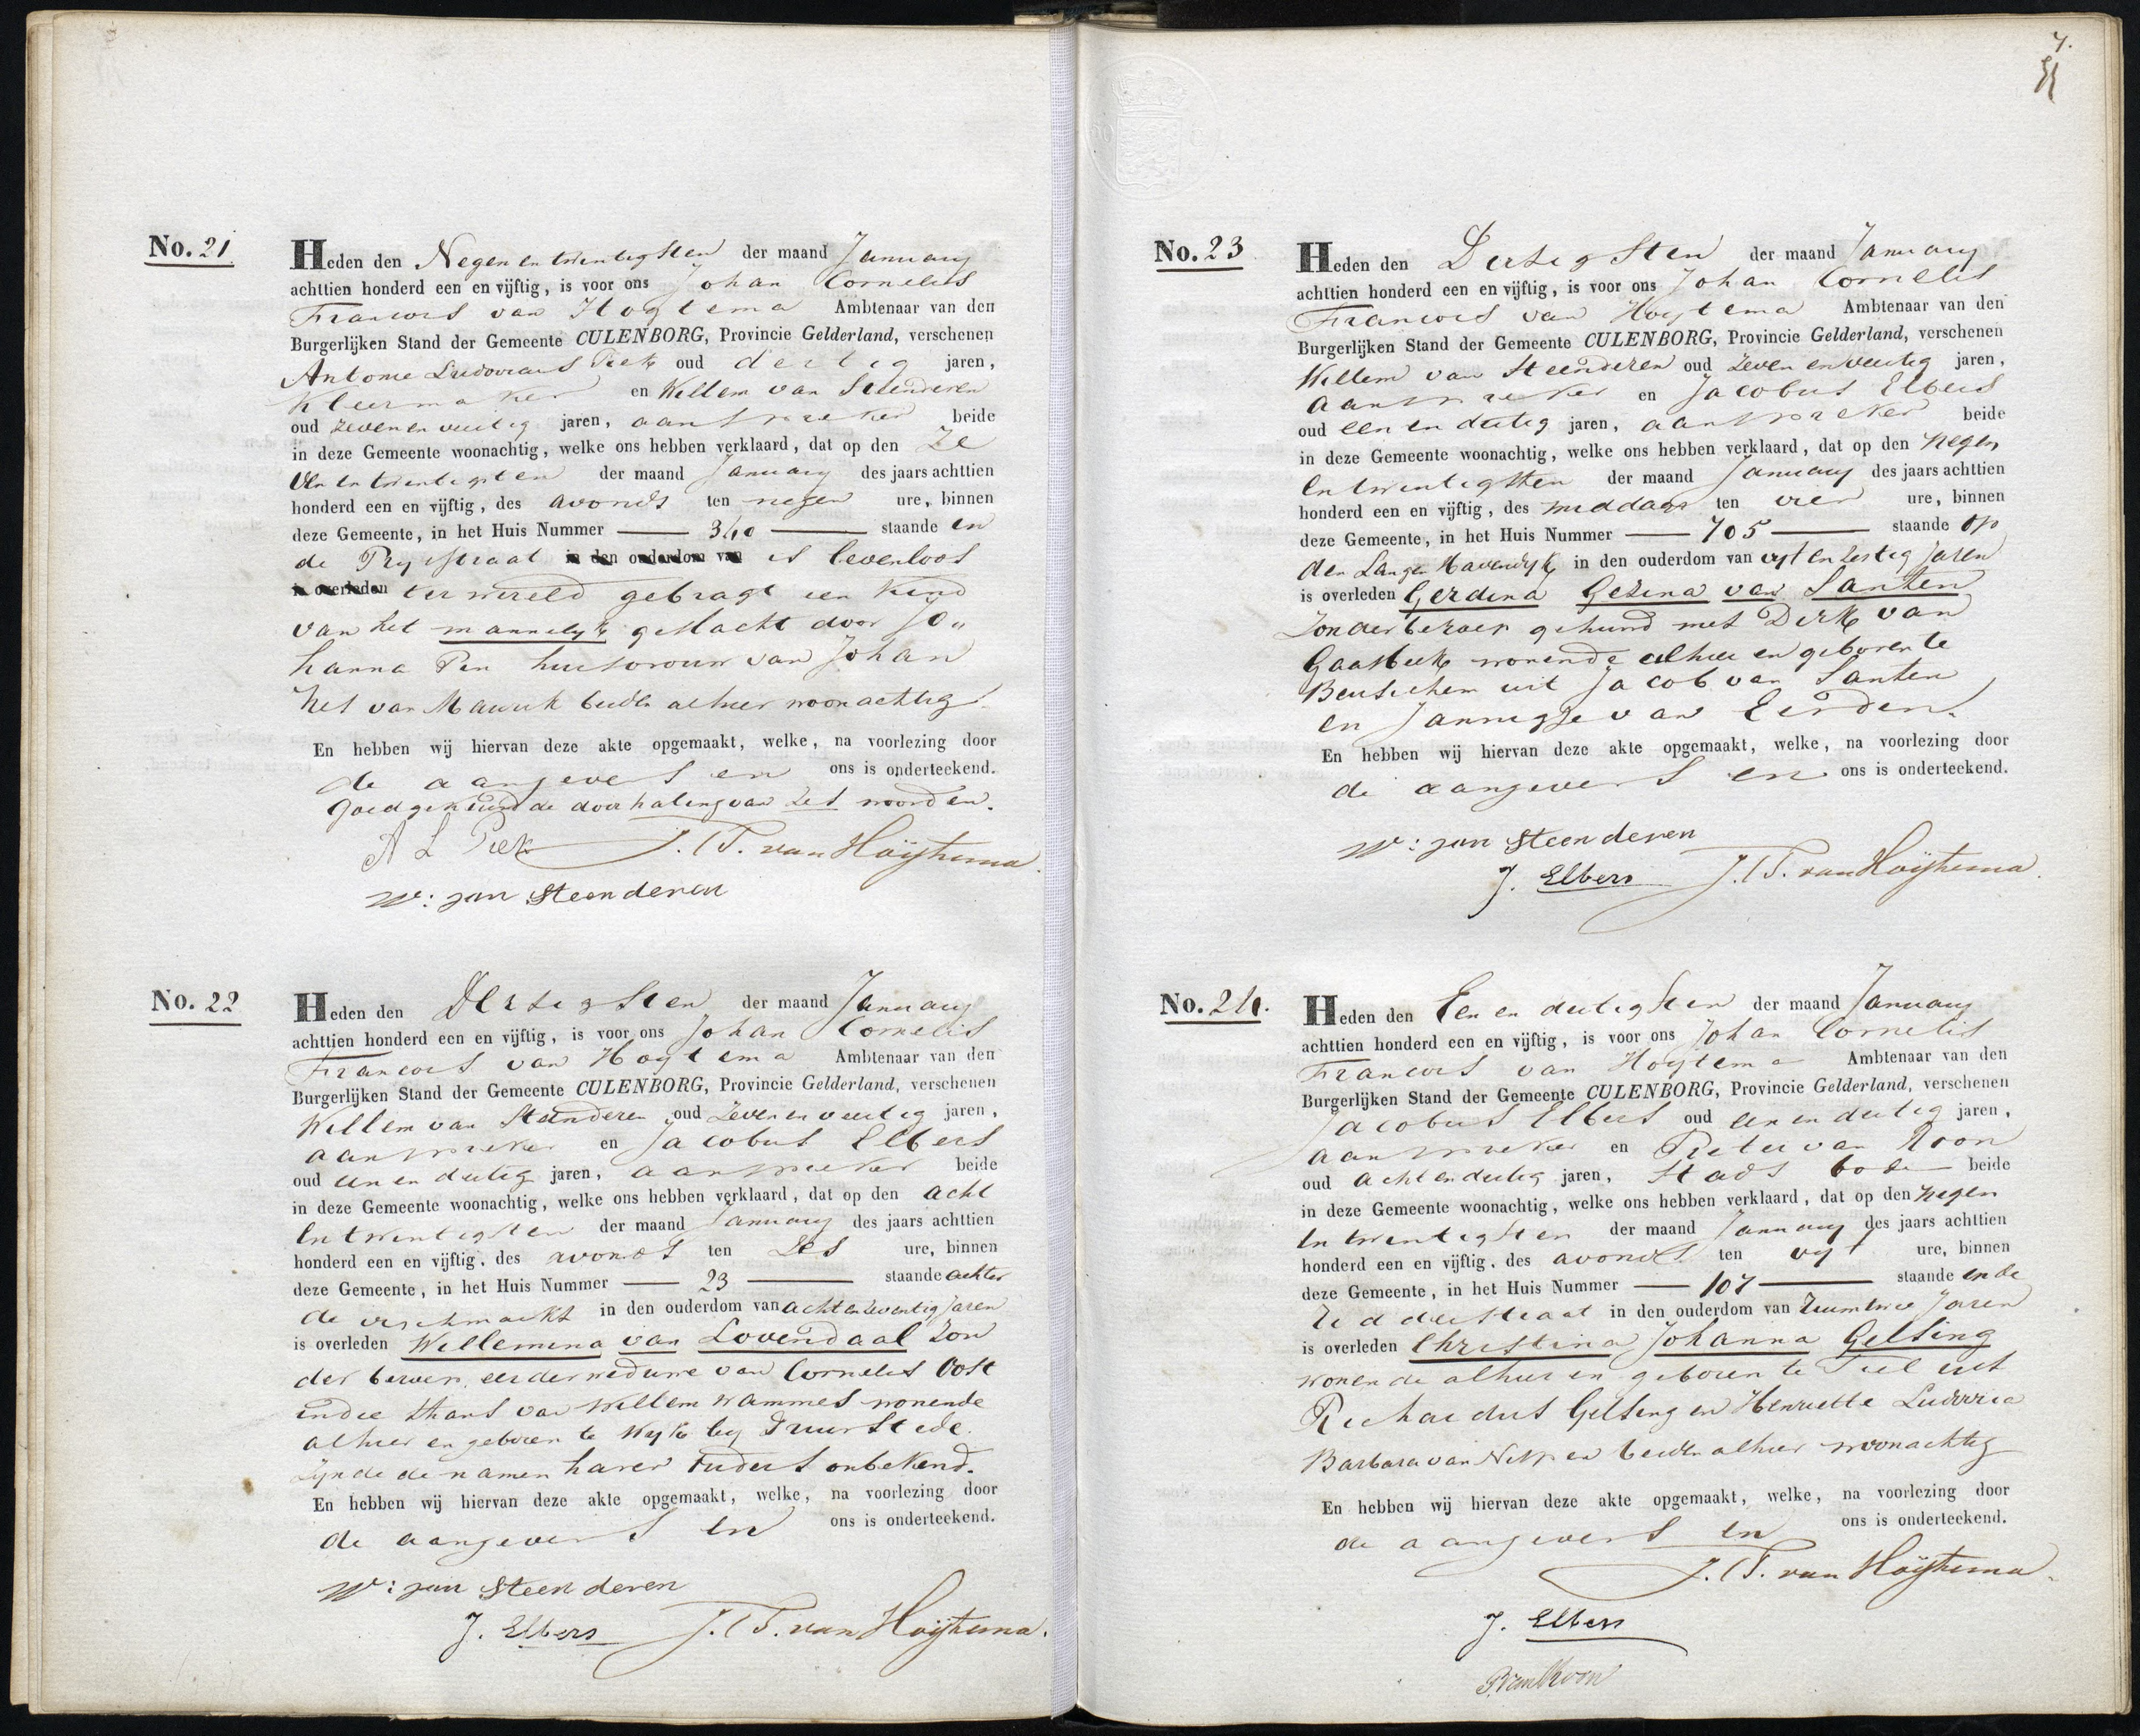 No. 21
Heden den Negen en twintigsten der maand January
achttien honderd een en vijftig, is voor ons Johan Cornelis
Francois van Hoytema Ambtenaar van den
Burgerlijken Stand der Gemeente CULENBORG, Provincie Gelderland, verschenen
Antonie Ludovicus Piek oud dertig jaren,
Kleermaker en Willem van Steenderen
oud zeven en veertig jaren, aanspreker beide
in deze Gemeente woonachtig, welke ons hebben verklaard, dat op den Ze
ven en twintigsten der maand January des jaars achttien
honderd een en vijftig, des avonds ten negen ure, binnen
deze Gemeente, in het Huis Nummer 340 staande in
de Prystraat in den ouderdom van is levenloos
is overleden ter wereld gebragt een kind
van het mannelyk geslacht door Jo„
hanna Pen huisvrouw van Johan
van Maurik beiden alhier woonachtig
En hebben wij hiervan deze akte opgemaakt, welke, na voorlezing door
de aangevers en ons is onderteekend.
Goedgekeurd de doorhaling van zes woorden.
A L Piek J. C F. van Hoÿtema
W: van Steenderen
No. 22
Heden den Dertigsten der maand January
achttien honderd een en vijftig, is voor ons Johan Cornelis
Francois van Hoytema Ambtenaar van den
Burgerlijken Stand der Gemeente CULENBORG, Provincie Gelderland, verschenen
Willem van Steenderen oud zeven en veertig jaren,
aanspreker en Jacobus Elbers
oud een en dertig jaren, aanspreker beide
in deze Gemeente woonachtig, welke ons hebben verklaard, dat op den acht
en twintigsten der maand January des jaars achttien
honderd een en vijftig, des avonds ten zes ure, binnen
deze Gemeente, in het Huis Nummer 23 staande achter
de vischmarkt in den ouderdom van acht en zeventig Jaren
is overleden Willemina van Lovendaal zon
der beroep, eerder weduwe van Cornelis Oost
indie thans van Willem Wammes wonende
alhier en geboren te Wyk by Duurstede.
zynde de namen harer ouders onbekend.
En hebben wij hiervan deze akte opgemaakt, welke, na voorlezing door
de aangevers en ons is onderteekend.
W: van Steenderen
J. Elbers J. C F. van Hoÿtema.
7.
No. 23
Heden den Dertigsten der maand January
achttien honderd een en vijftig, is voor ons Johan Cornelis
Francois van Hoytema Ambtenaar van den
Burgerlijken Stand der Gemeente CULENBORG, Provincie Gelderland, verschenen
Willem van Steenderen oud zeven en veertig jaren,
aanspreker en Jacobus Elbers
oud een en dertig jaren, aanspreker beide
in deze Gemeente woonachtig, welke ons hebben verklaard, dat op den negen
en twintigsten der maand January des jaars achttien
honderd een en vijftig, des middags ten vier ure, binnen
deze Gemeente, in het Huis Nummer 705 staande op
den Langen Havendyk in den ouderdom van vyf en zestig Jaren
is overleden Gerdina Gezina van Santen
zonder beroep gehuwd met Dirk van
Gaasbeek wonende alhier en geboren te
Beusichem uit Jacob van Santen
en Jannigje van Eerden.
En hebben wij hiervan deze akte opgemaakt, welke, na voorlezing door
de aangevers en ons is onderteekend.
W: van Steenderen
J. Elbers J. C F. van Hoÿtema.
No. 24.
Heden den Een en dertigsten der maand January
achttien honderd een en vijftig, is voor ons Johan Cornelis
Francois van Hoytema Ambtenaar van den
Burgerlijken Stand der Gemeente CULENBORG, Provincie Gelderland, verschenen
Jacobus Elbers oud een en dertig jaren,
aanspreker en Pieter van Roon
oud acht en dertig jaren, Stads bode beide
in deze Gemeente woonachtig, welke ons hebben verklaard, dat op den negen
en twintigsten der maand January des jaars achttien
honderd een en vijftig, des avonds ten vyf ure, binnen
deze Gemeente, in het Huis Nummer 107 staande in de
Zedderstraat in den ouderdom van ruim twee Jaren
is overleden Christina Johanna Gelsing
wonende alhier en geboren te Tiel uit
Richardus Gelsing en Henriette Ludovica
Barbara van Nespen beiden alhier woonachtig
En hebben wij hiervan deze akte opgemaakt, welke, na voorlezing door
de aangevers en ons is onderteekend.
J. C F. van Hoÿtema.
J. Elbers
P. van Roon